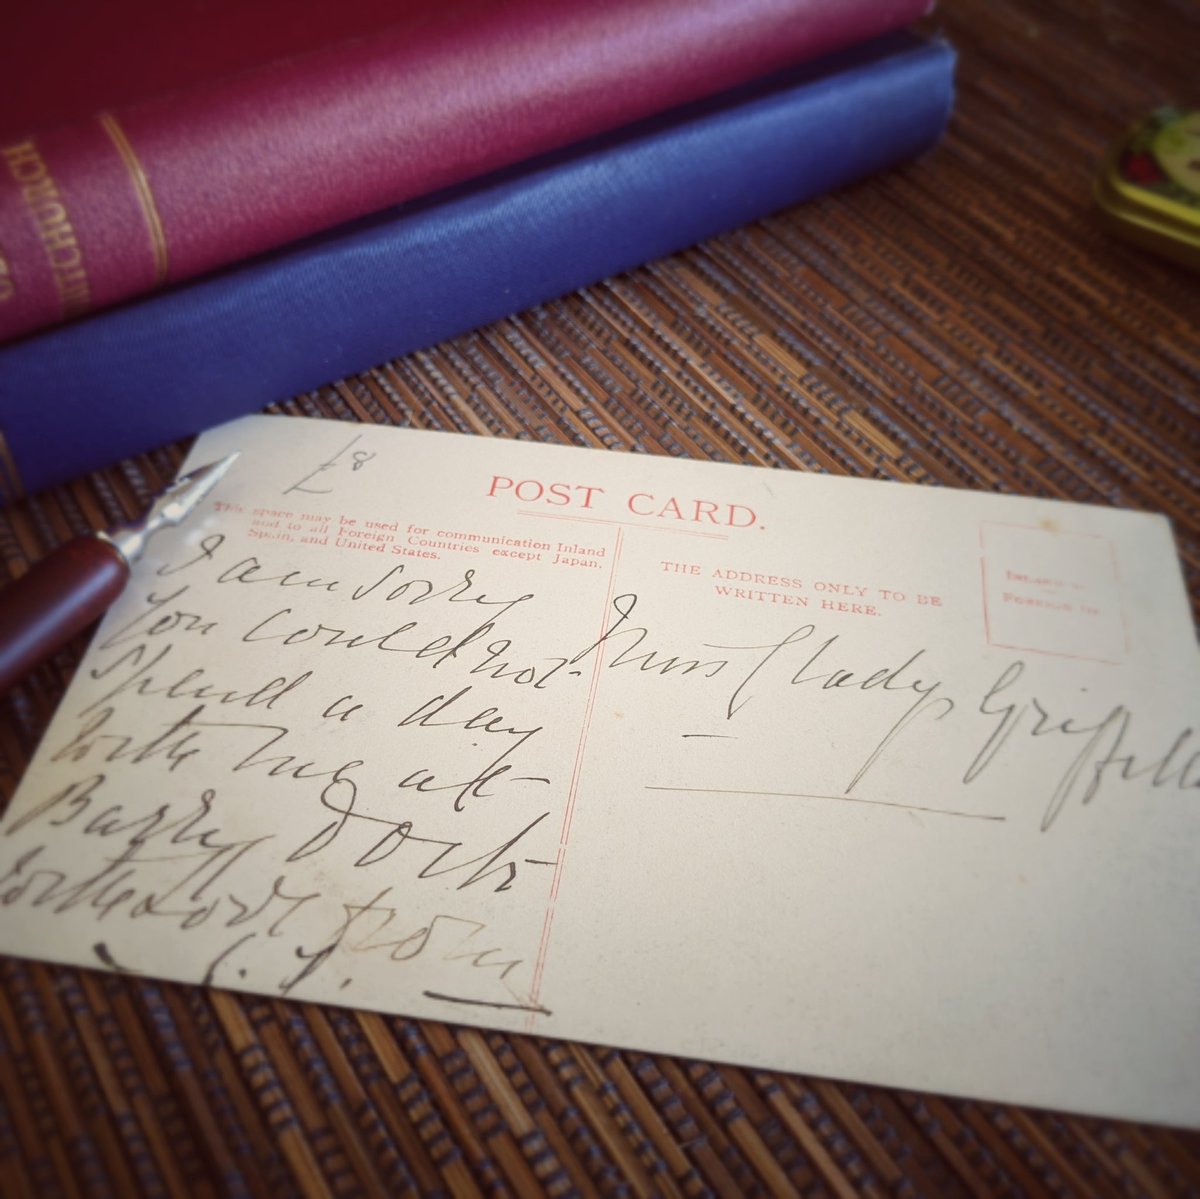 WHITCHURCH
£8
POST CARD.
This space may be used for communication Inland
and to all Foreign Countries except Japan,
Spain, and United States.
THE ADDRESS ONLY TO BE
WRITTEN HERE.
I am sorry
you could not
spend a day
with me at
Barry Dock
with love from
Miss Gladys Griffith